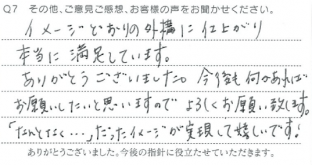 Q7 その他、ご意見ご感想、お客様の声をお聞かせください。
イメージどおりの外構に仕上がり
本当に満足しています。
ありがとうございました。今後も何かあれば
お願いしたいと思いますので よろしくお願い致します。
「なんとなく・・・」だったイメージが実現して嬉しいです!
ありがとうございました。今後の指針に役立たせていただきます。